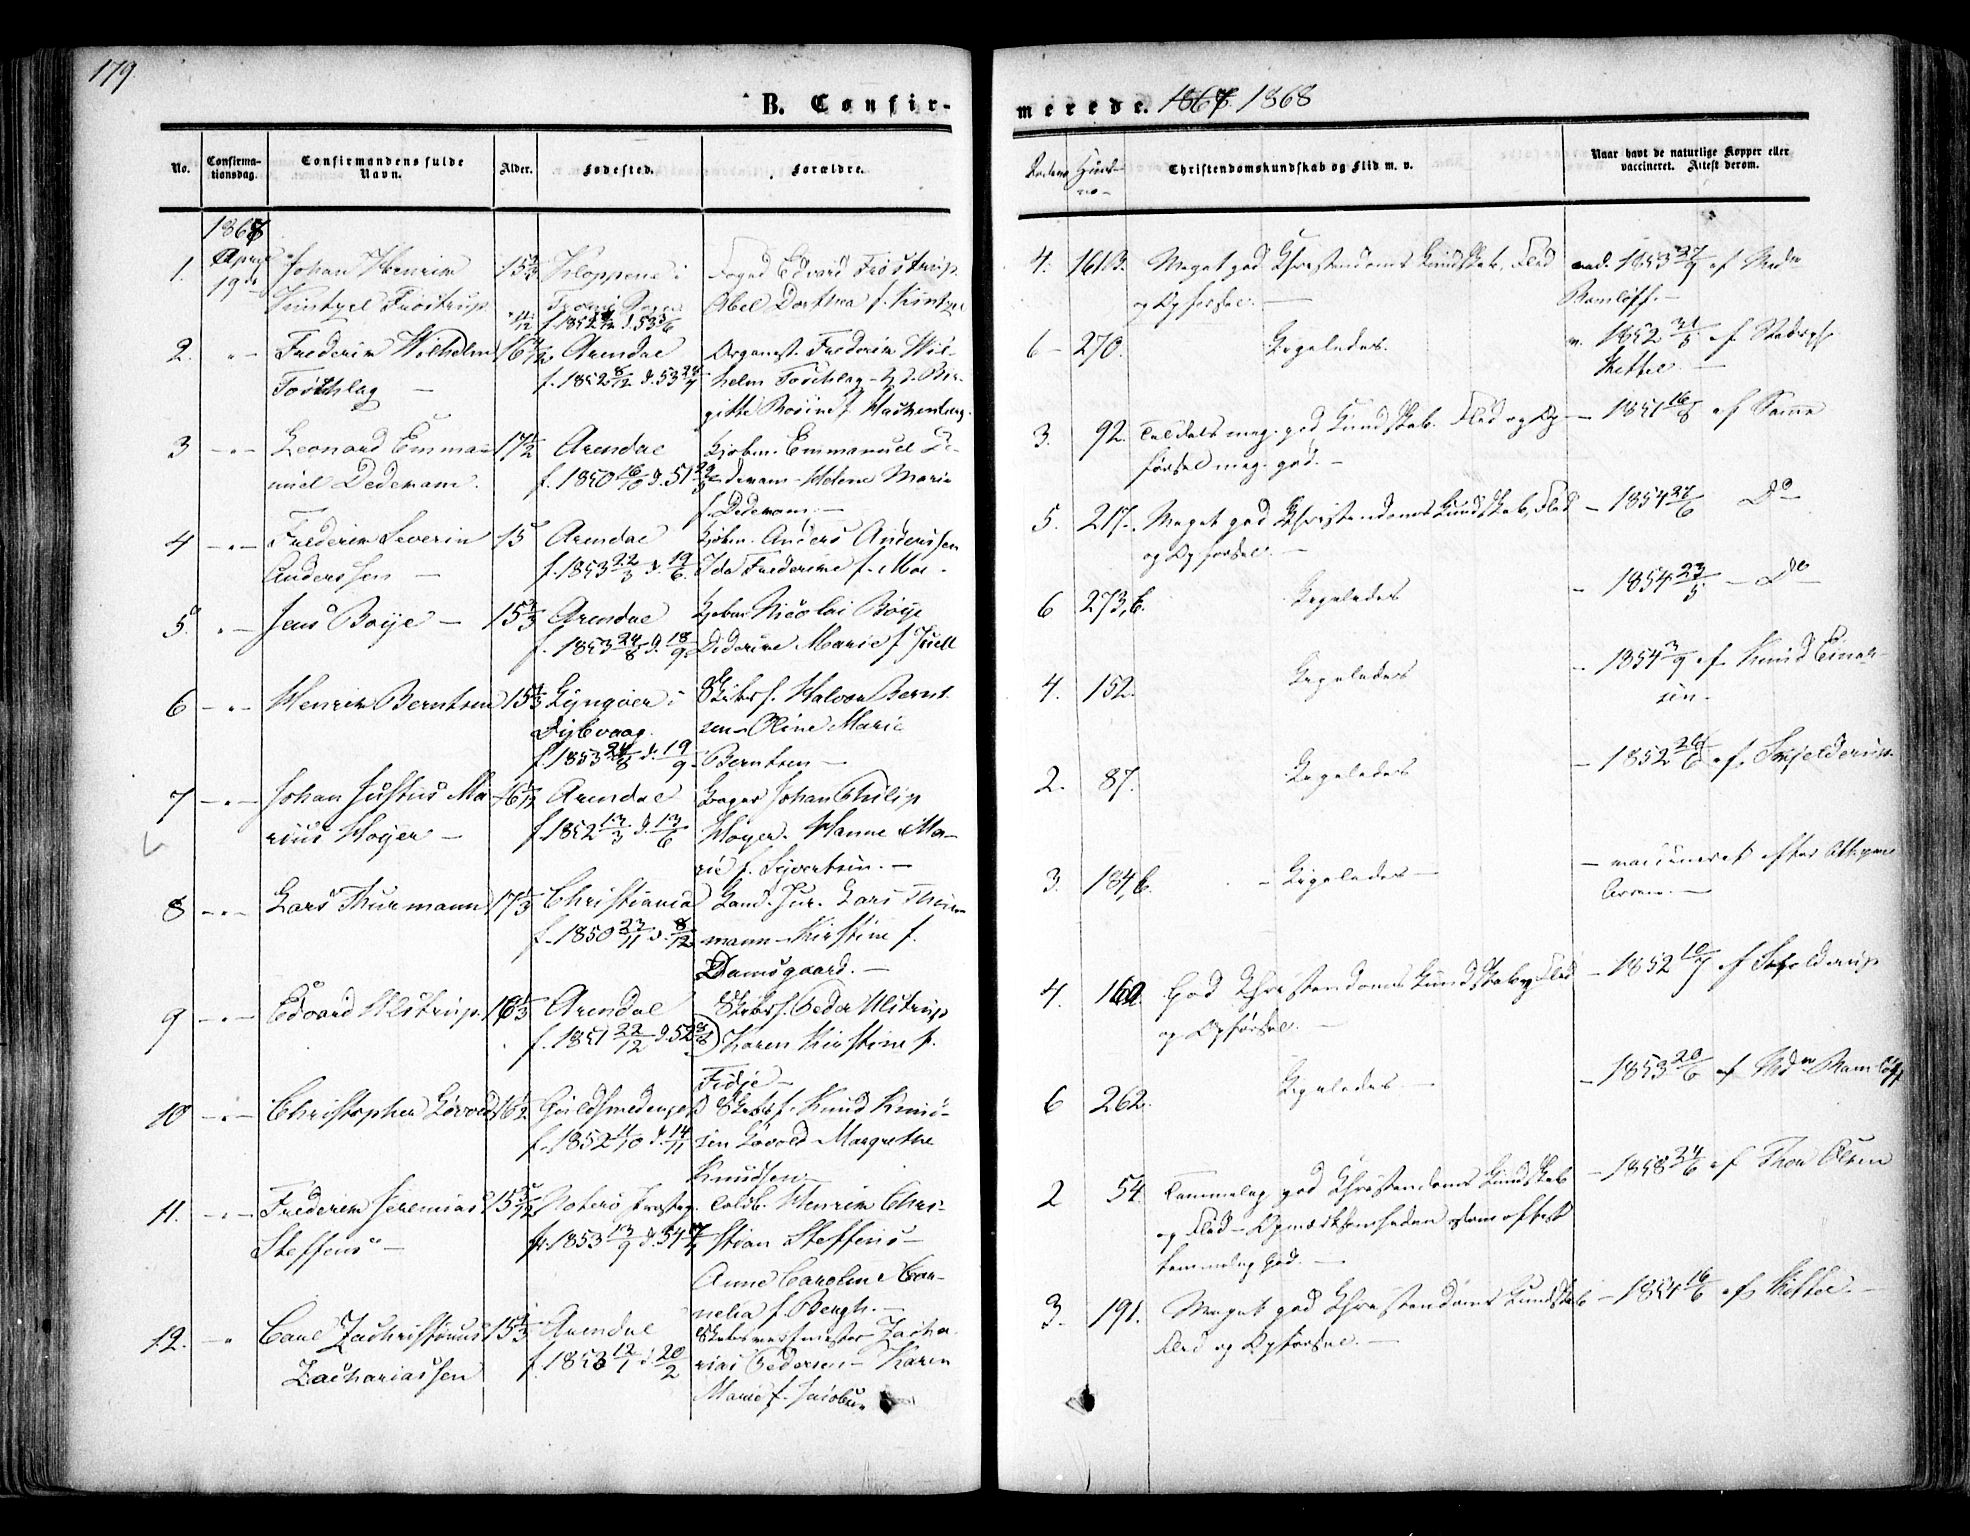 179
B. Confir-
merede. 1867. 1868
No.
Confirma-
tionsdag.
Confirmandens fulde
Navn.
Alder.
Fødested.
Forældre.
Rodens
Huus-
no-
Christendomskundskab og Flid m. v.
Naar havt de naturlige Kopper eller
vaccineret. Attest derom.
1868
April
19de
1. Johan Henrik
Kintzel Frostrup
15 Kloppene i
f. 1852
Foged Edvard Frostrup
Abel Dorthea f. Kintzel
4. 161 B. Meget god Christendoms Kundskab, Flid
og Opførsel. —
vac. 1853 27/9 af Mdm
Ramløff. —
2. " Frederik Wilhelm
Foschlag —
16 Arendal
f. 1852 8/12 d. 53
Organist Frederik Wil-
helm Foschlag - Bir-
gitte Rosine f. Hackenberg
6 - 270. Ligeledes.
v. 1852 31/5 af
Kittel. —
3 - " - Leonard Emma-
nuel Dedekam.
17 1/2 Arendal
f. 1850 16/10 d. 51
Kjøbm. Emmanuel De-
dekam - Helene Marie
f. Dedekam. —
3. 92. Taldels meg. god Kundskab. Flid og Op-
førsel meg. god. —
- 1851 16/8 af Samme
4 - " - Frederik Severin
Anderssen —
15 Arendal
f. 1853 22/3 d. 19/6
Kjøbm. Anders Anderssen
Ida Frederikke f. Moe.
5. 217. Meget god Christendoms Kundskab, Flid
og Opførsel. —
- 1854 27/6 Do
5. " - Jens Boye —
15 2/3 Arendal
f. 1853 24/8 d. 18/9
Kjøbm. Nicolai Boye
Diderikke Marie f. Juell
6 273, b. Ligeledes
- 1854 23/5 - Do
6 - " - Henrik Berntsen
15 2/3 Lyngøer i
Dybvaag.
f. 1853 24/8 d. 19/9
Skibsf. Halvor Bernt-
sen - Oline Marie
Berntsen —
4. 152. Ligeledes
- 1854 3/9 af Knud Einar-
sen.
7 - " - Johan Justus Ma-
rius Høyer —
16 1/12 Arendal
f. 1852 13/3 d. 13/6
Bager Johan Philip
Høyer. Hanne Ma-
rie f. Sivertsen. —
2. 87. Ligeledes
- 1852 af Skjelderup.
8 - " - Lars Thurmann
17 1/3 Christiania
f. 1850 23/11 d. 8/12
Cand. Jur. Lars Thur-
mann - Kirstine f.
Damsgaard. —
3. 184, b. - Ligeledes —
- vaccineret efter
9 - " - Edvard Ulstrup.
16 1/3 Arendal
f. 1851 22/12 d. 52
Skibsf. Peder Ulstrup
Karen Kirstine f.
Fidje —
4. 160. God Christendoms Kundskab, Flid
og Opførsel. —
- 1852 10/7 af Skjelderup
10 - " - Christopher Løvold
15 1/2 Guldsmedengen
f. 1852 11/10 d. 14/11
Skibsf. Knud Knud-
sen Løvold - Margrethe
Knudsen —
6 262. Ligeledes —
- 1853 20/6 af Mdm Ramløff
11. - " - Frederik Jeremias
Steffens —
15 7/12
f. 1853 13/9 d. 54
Toldb. Henrik Chri-
stian Steffens —
Anne Caroline Cor-
nelia f. Bergh. —
2 54. Temmelig god Christendoms Kundskab
og Flid - Opmærksomheden som oftest
temmelig god. —
- 1858 24/6 af Thor Olsen
12. - " Carl Zachristinus
Zachariassen
15 1/3 Arendal
f. 1853 12/1 d. 20/2
Skibsværftmester Zacha-
rias Pedersen - Karen
Marie f. Jacobsen
3. 191. Meget god Christendoms Kundskab
Flid og Opførsel. —
- 1854 16/6 af Kittel. —